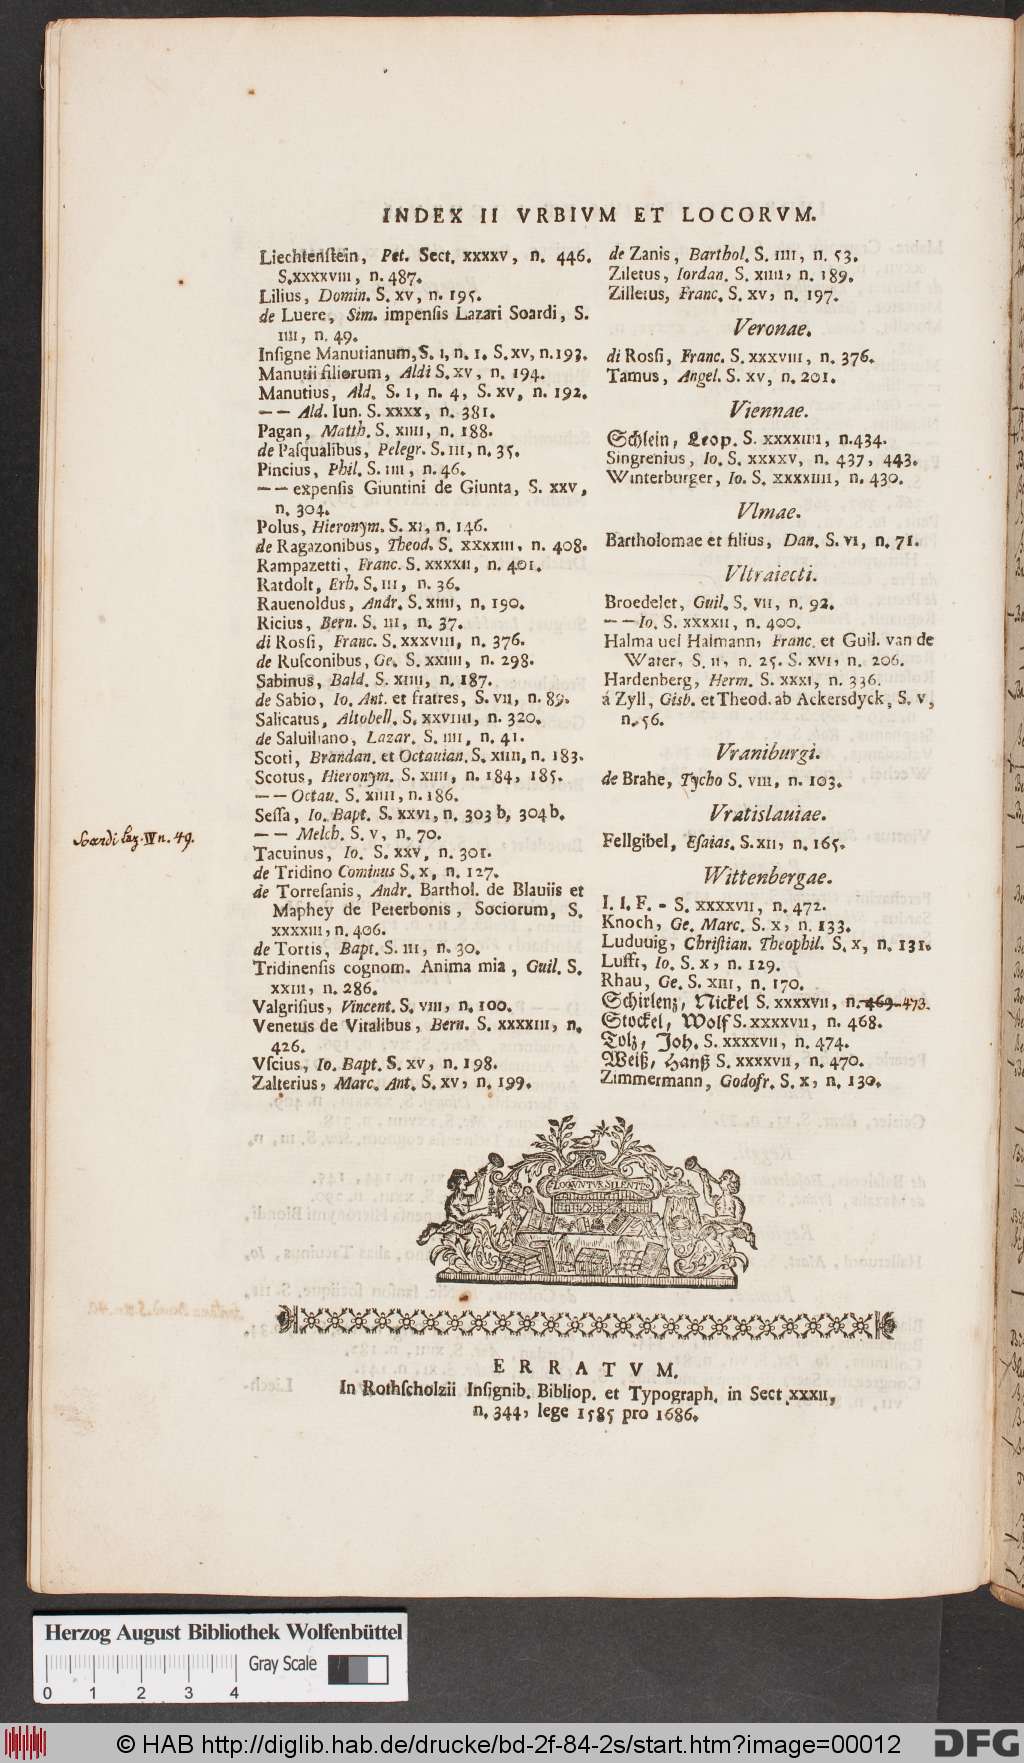 INDEX II VRBIVM ET LOCORVM.
Liechtenſtein, Pet. Sect. XXXXV, n. 446.
S.XXXXVIII, n. 487.
Lilius, Domin. S. XV, n. 195.
de Luere, Sim. impenſis Lazari Soardi, S.
IIII, n. 49.
Inſigne Manutianum, S. I, n. I. S. XV, n. 193.
Manutii filiorum, Aldi S. XV, n. 194.
Manutius, Ald. S. I, n. 4, S. XV, n. 192.
—— Ald. Iun. S. XXXX, n. 381.
Pagan, Matth. S. XIIII, n. 188.
de Paſqualibus, Pelegr. S. III, n. 35.
Pincius, Phil. S. IIII, n. 46.
—— expenſis Giuntini de Giunta, S. XXV,
n. 304.
Polus, Hieronym. S. XI, n. 146.
de Ragazonibus, Theod. S. XXXXIII, n. 408.
Rampazetti, Franc. S. XXXXII, n. 401.
Ratdolt, Erh. S. III, n. 36.
Rauenoldus, Andr. S. XIIII, n. 190.
Ricius, Bern. S. III, n. 37.
di Roſſi, Franc. S. XXXVIII, n. 376.
de Ruſconibus, Ge. S. XXIIII, n. 298.
Sabinus, Bald. S. XIIII, n. 187.
de Sabio, Io. Ant. et fratres, S. VII, n. 89.
Salicatus, Altobell. S. XXVIIII, n. 320.
de Saluiliano, Lazar. S. IIII, n. 41.
Scoti, Brandan. et Octauian. S. XIIII, n. 183.
Scotus, Hieronym. S. XIIII, n. 184, 185.
—— Octau. S. XIIII, n. 186.
Seſſa, Io. Bapt. S. XXVI, n. 303 b, 304 b.
—— Melch. S. V, n. 70.
Tacuinus, Io. S. XXV, n. 301.
de Tridino Cominus S. X, n. 127.
de Torreſanis, Andr. Barthol. de Blauiis et
Maphey de Peterbonis, Sociorum, S.
XXXXIII, n. 406.
de Tortis, Bapt. S. III, n. 30.
Tridinenſis cognom. Anima mia, Guil. S.
XXIII, n. 286.
Valgriſius, Vincent. S. VIII, n. 100.
Venetus de Vitalibus, Bern. S. XXXXIII, n.
426.
Vſcius, Io. Bapt. S. XV, n. 198.
Zalterius, Marc. Ant. S. XV, n. 199.
Soardi Laz. IV n. 49.
de Zanis, Barthol. S. IIII, n. 53.
Ziletus, Iordan. S. XIIII, n. 189.
Zilletus, Franc. S. XV, n. 197.
Veronae.
di Roſſi, Franc. S. XXXVIII, n. 376.
Tamus, Angel. S. XV, n. 201.
Viennae.
Schlein, Leop. S. XXXXIIII, n. 434.
Singrenius, Io. S. XXXXV, n. 437, 443.
Winterburger, Io. S. XXXXIIII, n. 430.
Vlmae.
Bartholomae et filius, Dan. S. VI, n. 71.
Vltraiecti.
Broedelet, Guil. S. VII, n. 92.
—— Io. S. XXXXII, n. 400.
Halma uel Halmann, Franc. et Guil. van de
Water, S. II, n. 25. S. XVI, n. 206.
Hardenberg, Herm. S. XXXI, n. 336.
á Zyll, Gisb. et Theod. ab Ackersdyck, S. V,
n. 56.
Vraniburgi.
de Brahe, Tycho S. VIII, n. 103.
Vratislauiae.
Fellgibel, Eſaias. S. XII, n. 165.
Wittenbergae.
I. I. F. - S. XXXXVII, n. 472.
Knoch, Ge. Marc. S. X, n. 133.
Luduuig, Chriſtian. Theophil. S. X, n. 131.
Lufft, Io. S. X, n. 129.
Rhau, Ge. S. XIII, n. 170.
Schirlenz, Nickel S. XXXXVII, n. 469 473.
Stockel, Wolf S. XXXXVII, n. 468.
Tolz, Joh. S. XXXXVII, n. 474.
Weiß, Hanß S. XXXXVII, n. 470.
Zimmermann, Godofr. S. X, n. 130.
LOQVNTVR SILENTES
ERRATVM.
In Rothſcholzii Inſignib. Bibliop. et Typograph. in Sect XXXII,
n. 344, lege 1585 pro 1686.
Herzog August Bibliothek Wolfenbüttel
Gray Scale
0 1 2 3 4
© HAB http://diglib.hab.de/drucke/bd-2f-84-2s/start.htm?image=00012
DFG